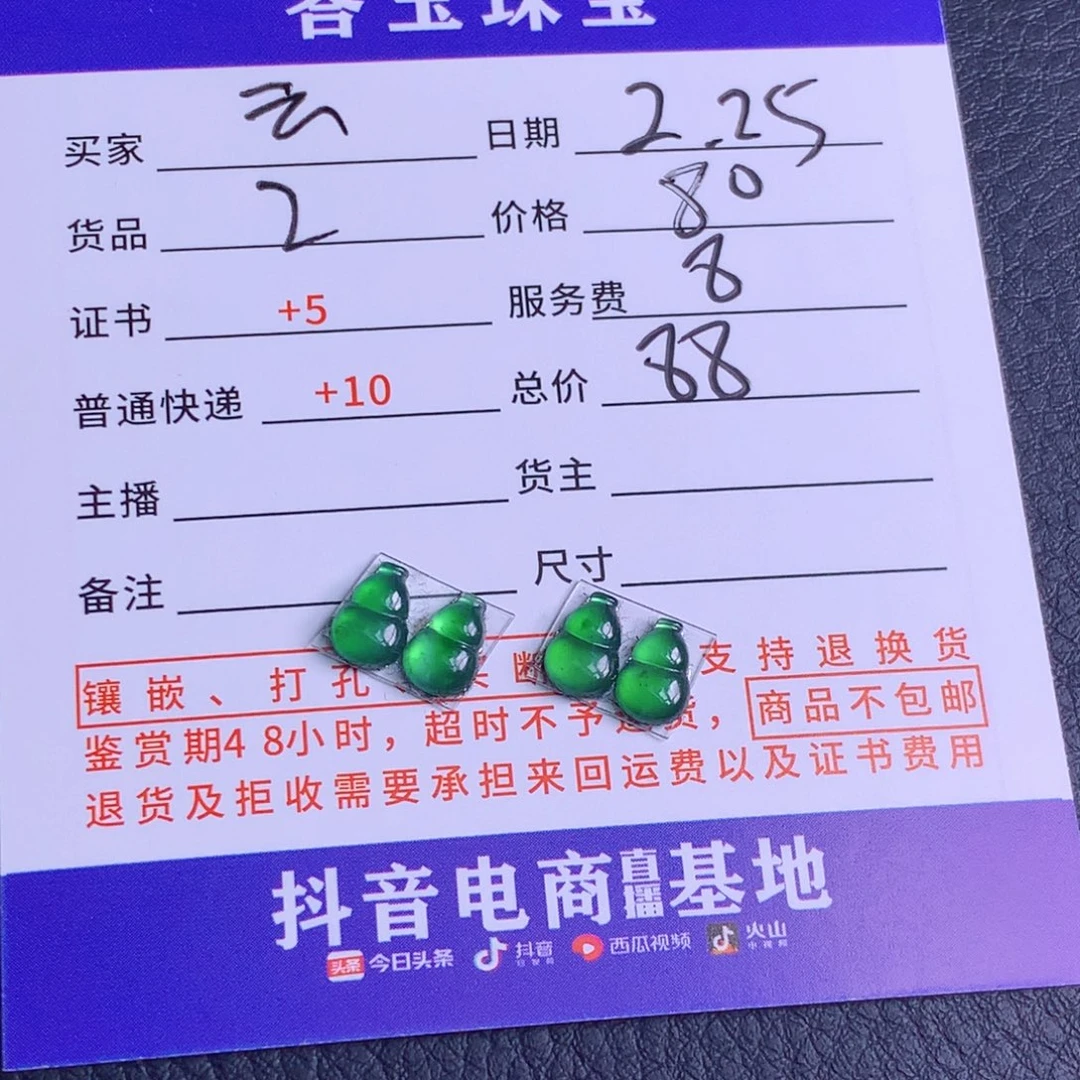 玉珠宝
买家 云 日期 2.25
货品 2 价格 80
证书 +5 服务费 8
普通快递 +10 总价 88
主播 货主
备注 尺寸
镶嵌、打孔、 支持退换货
鉴赏期48小时，超时不予退货，商品不包邮
退货及拒收需要承担来回运费以及证书费用
抖音电商直播基地
头条 今日头条 抖音 西瓜视频 火山